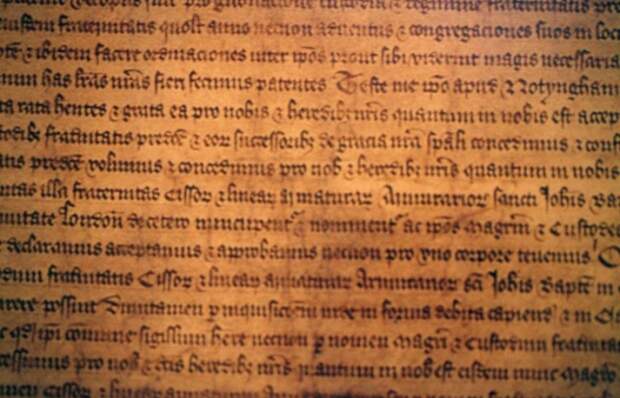 custodia & regimine fraternitatis
eiusdem fraternitatis quolt annis necnon adventus & congregaciones suos in loc
& ibidem facere ordinaciones inter ipos prout sibi viderint magis necessaria
has lras nras fieri fecimus patentes Teste me ipo apud Notyngham
ta rata hentes & grata ea pro nobis & heredibz nris quantum in nobis est accep
fratnitatis predce & eor successoribz de gracia nra spali concedimus & conf
tis predce volumus & concedimus pro nob & heredibz nris quantum in nobis
illa fraternitas Cissor & linear armaturar Armurarior sancti Johis Bap
Civitate London decetero nuncupent & nominent ac ipos Magrm & Custodes
declaramus acceptamus & approbamus necnon pro uno corpore tenemus
fratnitatis Cissor & linear armaturar Armurarior sci Johis Bapte in
possint Dumtamen p inquisicoem inde in forma debita capiend & in
qd ipi comune sigillum here necnon p nomen Magri & Custodum fratnita
cessimus pro nob & dcis heredibz nris quantum in nob est eisdem nunc Magro
Cissor & linear